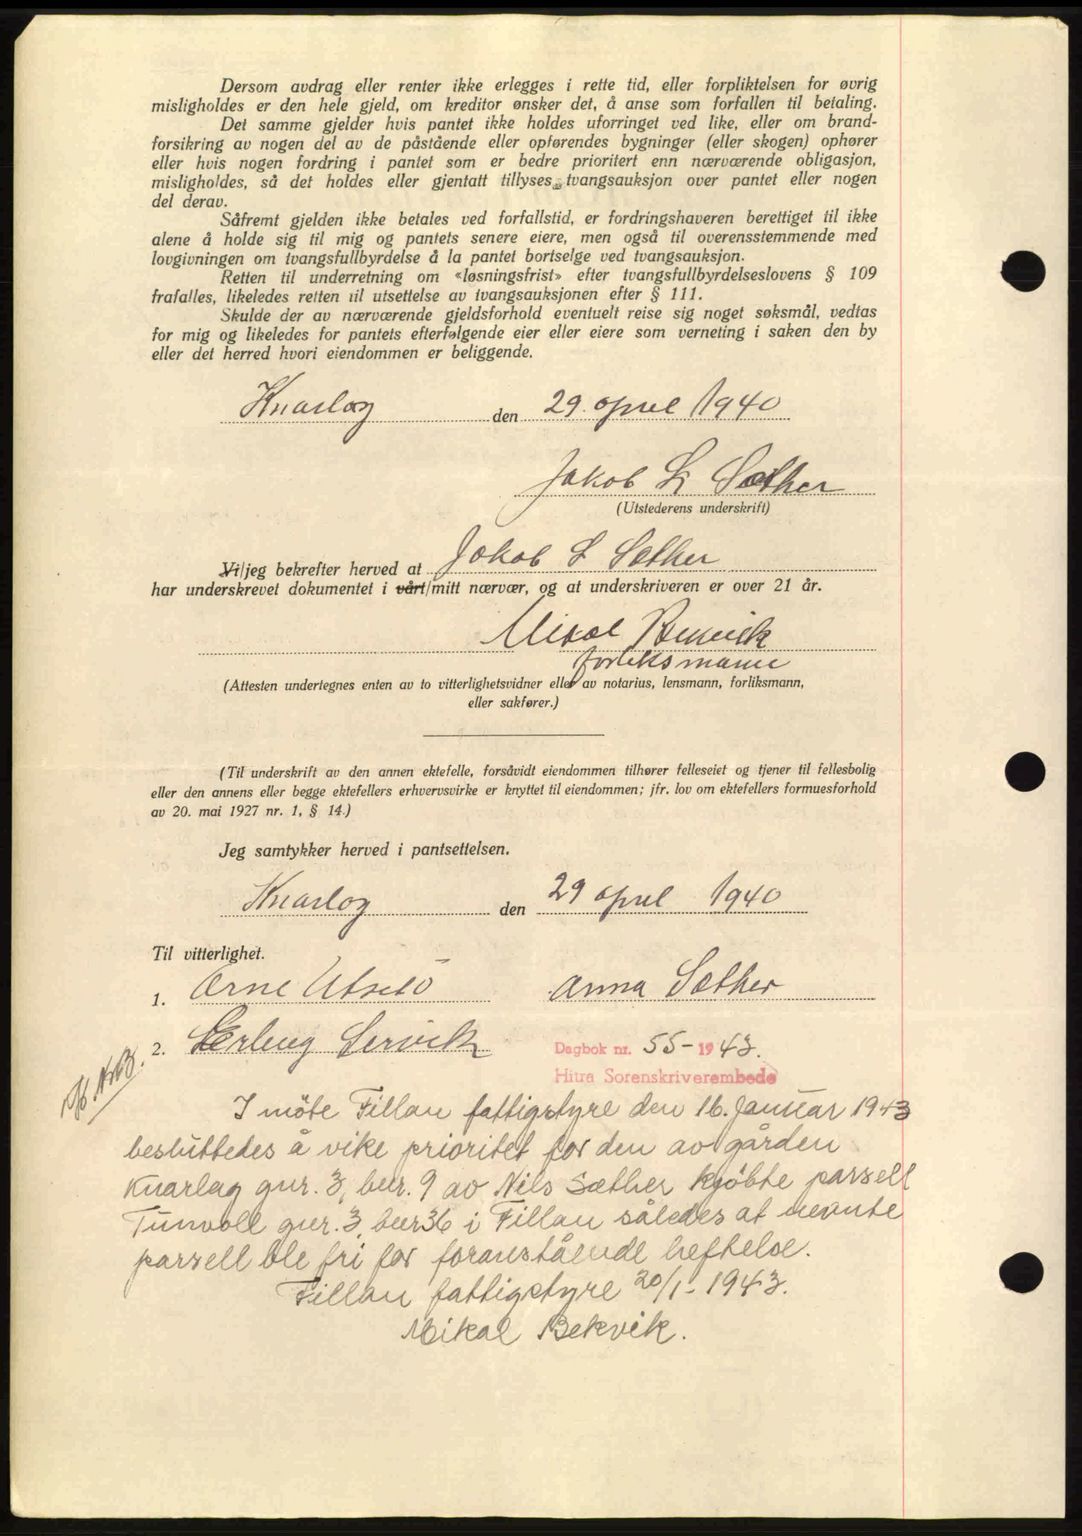 Dersom avdrag eller renter ikke erlegges i rette tid, eller forpliktelsen for øvrig
misligholdes er den hele gjeld, om kreditor ønsker det, å anse som forfallen til betaling.
Det samme gjelder hvis pantet ikke holdes uforringet ved like, eller om brand-
forsikring av nogen del av de påstående eller opførendes bygninger (eller skogen) ophører
eller hvis nogen fordring i pantet som er bedre prioritert enn nærværende obligasjon,
misligholdes, så det holdes eller gjentatt tillyses tvangsauksjon over pantet eller nogen
del derav.
Såfremt gjelden ikke betales ved forfallstid, er fordringshaveren berettiget til ikke
alene å holde sig til mig og pantets senere eiere, men også til overensstemmende med
lovgivningen om tvangsfullbyrdelse å la pantet bortselge ved tvangsauksjon.
Retten til underretning om «løsningsfrist» efter tvangsfullbyrdelseslovens § 109
frafalles, likeledes retten til utsettelse av tvangsauksjonen efter § 111.
Skulde der av nærværende gjeldsforhold eventuelt reise sig noget søksmål, vedtas
for mig og likeledes for pantets efterfølgende eier eller eiere som verneting i saken den by
eller det herred hvori eiendommen er beliggende.
Knarlag den 29. april 1940
Jakob L Sæther
(Utstederens underskrift)
Vi/jeg bekrefter herved at Jakob L Sæther
har underskrevet dokumentet i vårt/mitt nærvær, og at underskriveren er over 21 år.
Mikal Bekvik
forliksmann
(Attesten undertegnes enten av to vitterlighetsvidner eller av notarius, lensmann, forliksmann,
eller sakfører.)
(Til underskrift av den annen ektefelle, forsåvidt eiendommen tilhører felleseiet og tjener til fellesbolig
eller den annens eller begge ektefellers erhvervsvirke er knyttet til eiendommen; jfr. lov om ektefellers formuesforhold
av 20. mai 1927 nr. 1, § 14.)
Jeg samtykker herved i pantsettelsen.
Knarlag den 29 april 1940
Til vitterlighet.
1. Arne Utsetö Anna Sæther
2. Erling Servik
Dagbok nr. 55-1943.
Hitra Sorenskriverembede
I möte Fillan fattigstyre den 16. Januar 1943
besluttedes å vike prioritet for den av gården
Knarlag gnr. 3, bnr. 9 av Nils Sæther kjöbte parsell
Tunvoll gnr. 3, bnr 36 i Fillan således at nevnte
parsell ble fri for foranstående heftelse.
Fillan fattigstyre 20/1-1943.
Mikal Bekvik.